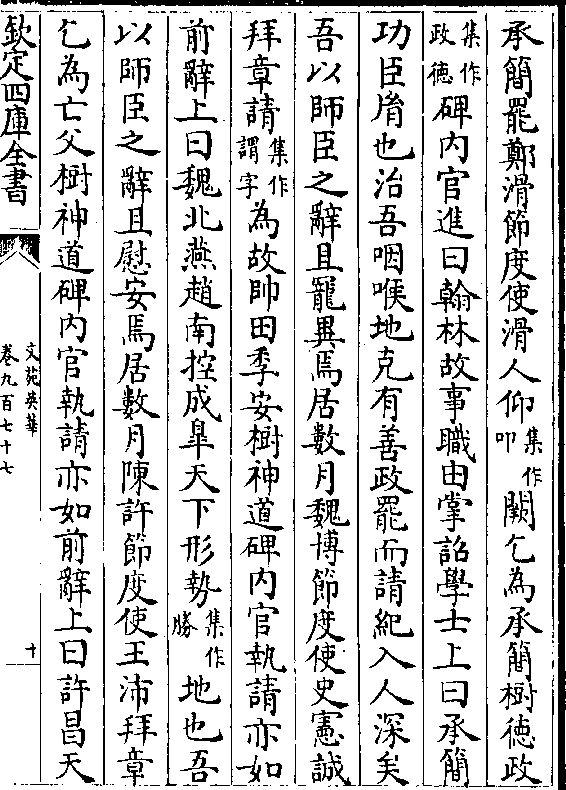 承簡罷鄭滑節度使滑人仰集作叩闕乞為承簡樹德政
集作政徳碑内官進曰翰林故事職由掌詔學士上曰承簡
功臣胤也治吾咽喉地克有善政罷而請紀入人深矣
吾以師臣之辭且寵異焉居數月魏博節度使史憲誠
拜章請集作謂字為故帥田季安樹神道碑内官執請亦如
前辭上曰魏北燕趙南控成臯天下形勢集作勝地也吾
以師臣之辭且慰安焉居數月陳許節度使王沛拜章
乞為亡父樹神道碑内官執請亦如前辭上曰許昌天
欽定四庫全書
文苑英華
卷九百七十七
十